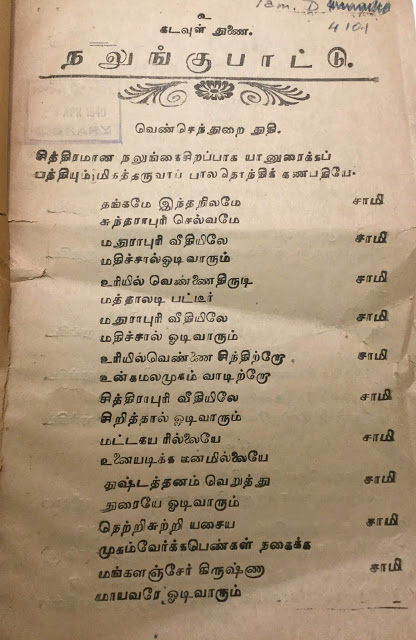 Tam. D
4101
உ
கடவுள் துணை.
நலுங்குபாட்டு.
வெண்செந்துறை துதி.
சித்திரமான நலுங்கைசிறப்பாக யானுரைக்கப்
பத்தியும்மிகத்தருவாப் பாலதொந்திக் கணபதியே.
தங்கமே இந்தநிலமே சாமி
சுந்தராபுரி செல்வமே
மதுராபுரி வீதியிலே சாமி
மதிச்சால்ஓடி வாரும்
உரியில் வெண்ணைதிருடி சாமி
மத்தாலடி பட்டீர்
மதுராபுரி வீதியிலே சாமி
மதிச்சால் ஓடிவாரும்
உரியில்வெண்ணை சிந்திற்றோ சாமி
உன்கமலமுகம் வாடிற்றோ
சித்திராபுரி வீதியிலே சாமி
சிறித்தால் ஓடிவாரும்
மட்டகய ரில்லையே சாமி
உனையடிக்க மனமில்லையே
துஷ்டத்தனம் வெறுத்து சாமி
துரையே ஓடிவாரும்
நெற்றிசுற்றி யசைய சாமி
முகம்வேர்க்கபெண்கள் நகைக்க
மங்களஞ்சேர் கிருஷ்ணா சாமி
மாயவரே ஓடிவாரும்